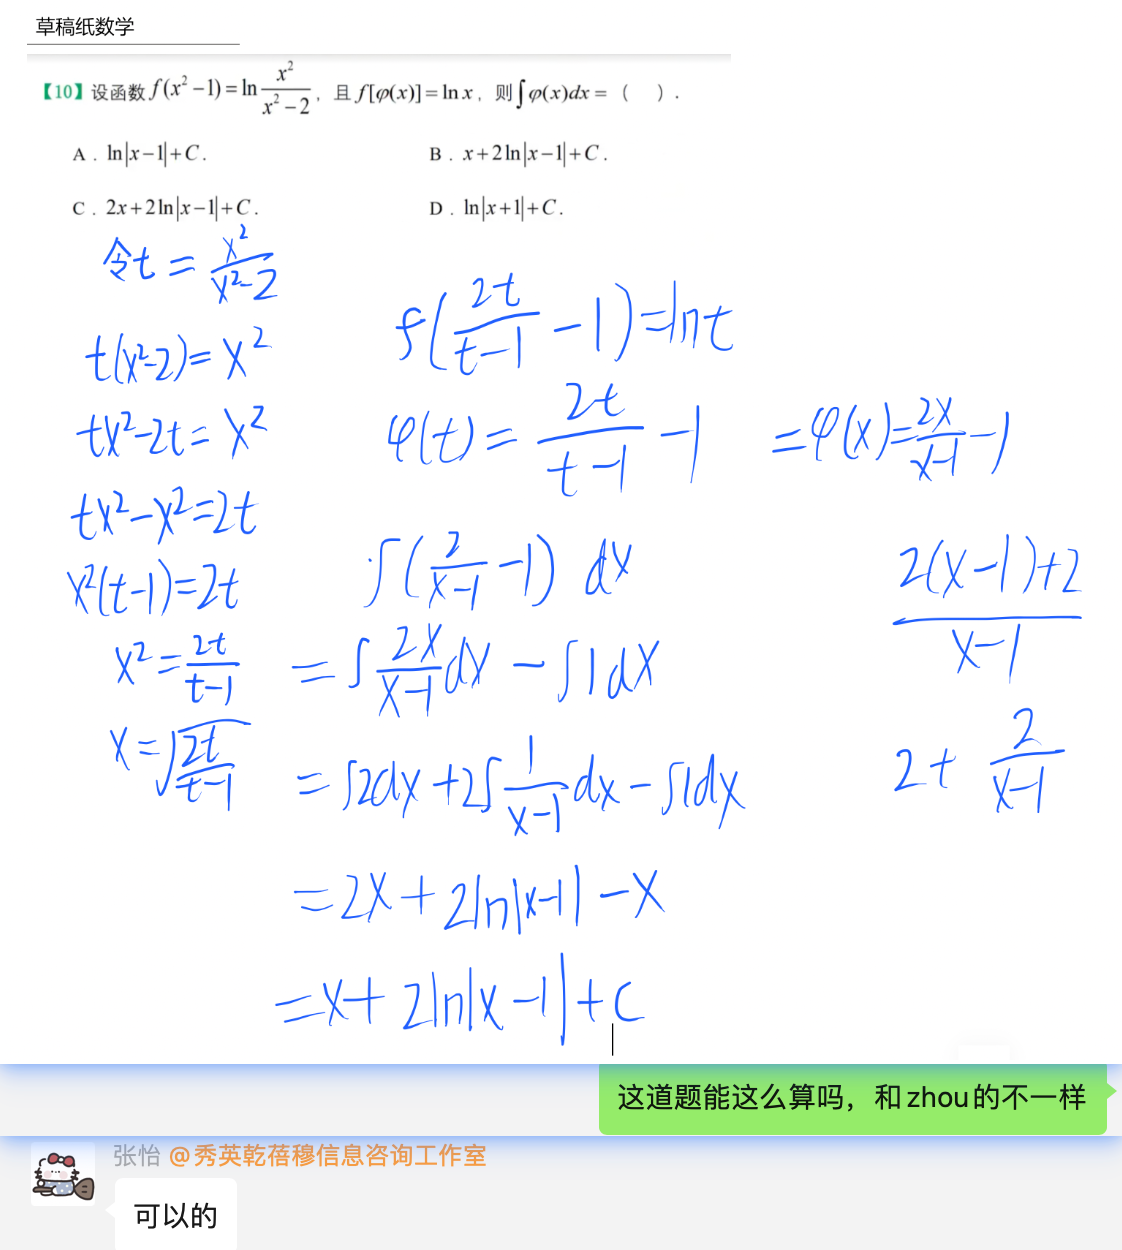 草稿纸数学
【10】设函数 f(x²−1)=ln x²/(x²−2)，且 f[φ(x)]=ln x，则∫φ(x)dx=（ ）.
A．ln|x−1|+C．
B．x+2ln|x−1|+C．
C．2x+2ln|x−1|+C．
D．ln|x+1|+C．
令t = x²/(x²−2)
t(x²−2)=x²
tx²−2t=x²
tx²−x²=2t
x²(t−1)=2t
x²=2t/(t−1)
x=√(2t/(t−1))
f(2t/(t−1) −1)=lnt
φ(t)=2t/(t−1) −1 =φ(x)=2x/(x−1) −1
∫(2/(x−1) −1) dx
=∫2x/(x−1) dx − ∫1dx
=∫2dx+2∫1/(x−1) dx−∫1dx
=2x+2ln|x−1|−x
=x+2ln|x−1|+C
(2(x−1)+2)/(x−1)
2+ 2/(x−1)
这道题能这么算吗，和zhou的不一样
张怡 @秀英乾蓓穆信息咨询工作室
可以的